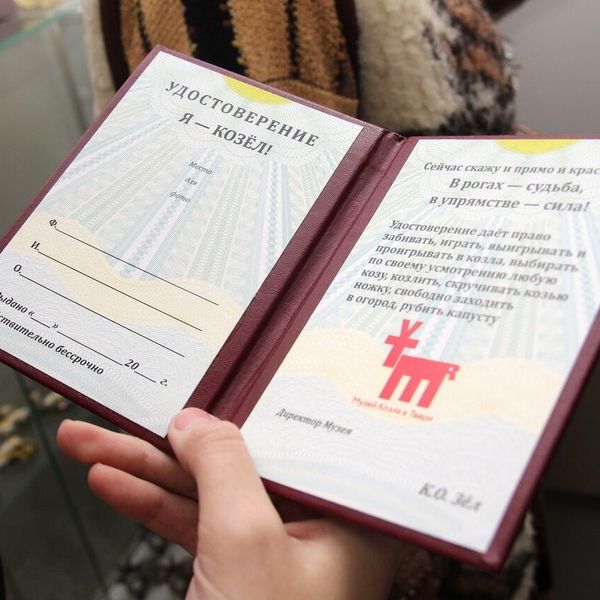 УДОСТОВЕРЕНИЕ
Я — КОЗЁЛ!
Место
для
фото
Ф.
И.
О.
Выдано «___»____________20___ г.
ствительно бессрочно
Сейчас скажу и прямо и крас
В рогах — судьба,
в упрямстве — сила!
Удостоверение даёт право
забивать, играть, выигрывать и
проигрывать в козла, выбирать
по своему усмотрению любую
козу, козлить, скручивать козью
ножку, свободно заходить
в огород, рубить капусту
Музей Козла в Твери
Директор Музея
К.О. Зёл